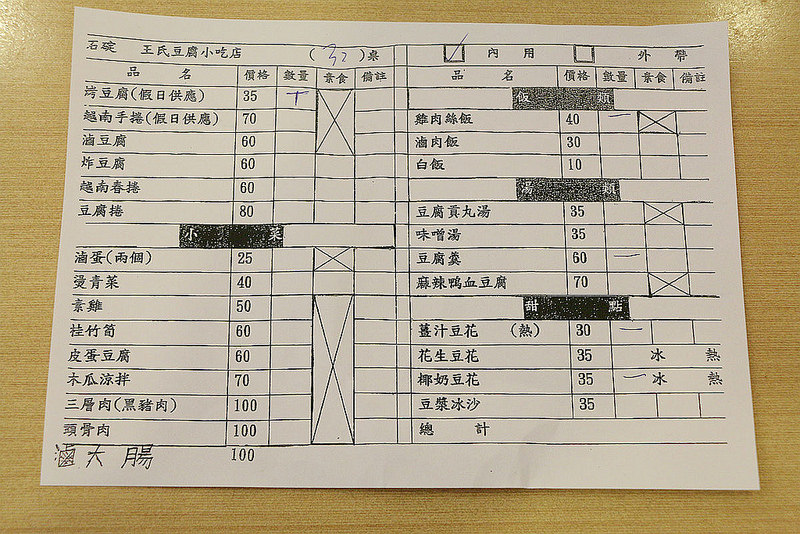 石碇 王氏豆腐小吃店 (32)桌
品 名 價格 數量 素食 備註
烤豆腐(假日供應) 35 T
越南手捲(假日供應) 70
滷豆腐 60
炸豆腐 60
越南春捲 60
豆腐捲 80
小 菜
滷蛋(兩個) 25
燙青菜 40
素雞 50
桂竹筍 60
皮蛋豆腐 60
木瓜涼拌 70
三層肉(黑豬肉) 100
頭骨肉 100
滷大腸 100
✓ 內用 外帶
品 名 價格 數量 素食 備註
飯 類
雞肉絲飯 40 一
滷肉飯 30
白飯 10
湯 類
豆腐貢丸湯 35
味噌湯 35
豆腐羹 60 一
麻辣鴨血豆腐 70
甜 點
薑汁豆花 (熱) 30 一
花生豆花 35 冰 熱
椰奶豆花 35 一 冰 熱
豆漿冰沙 35
總 計